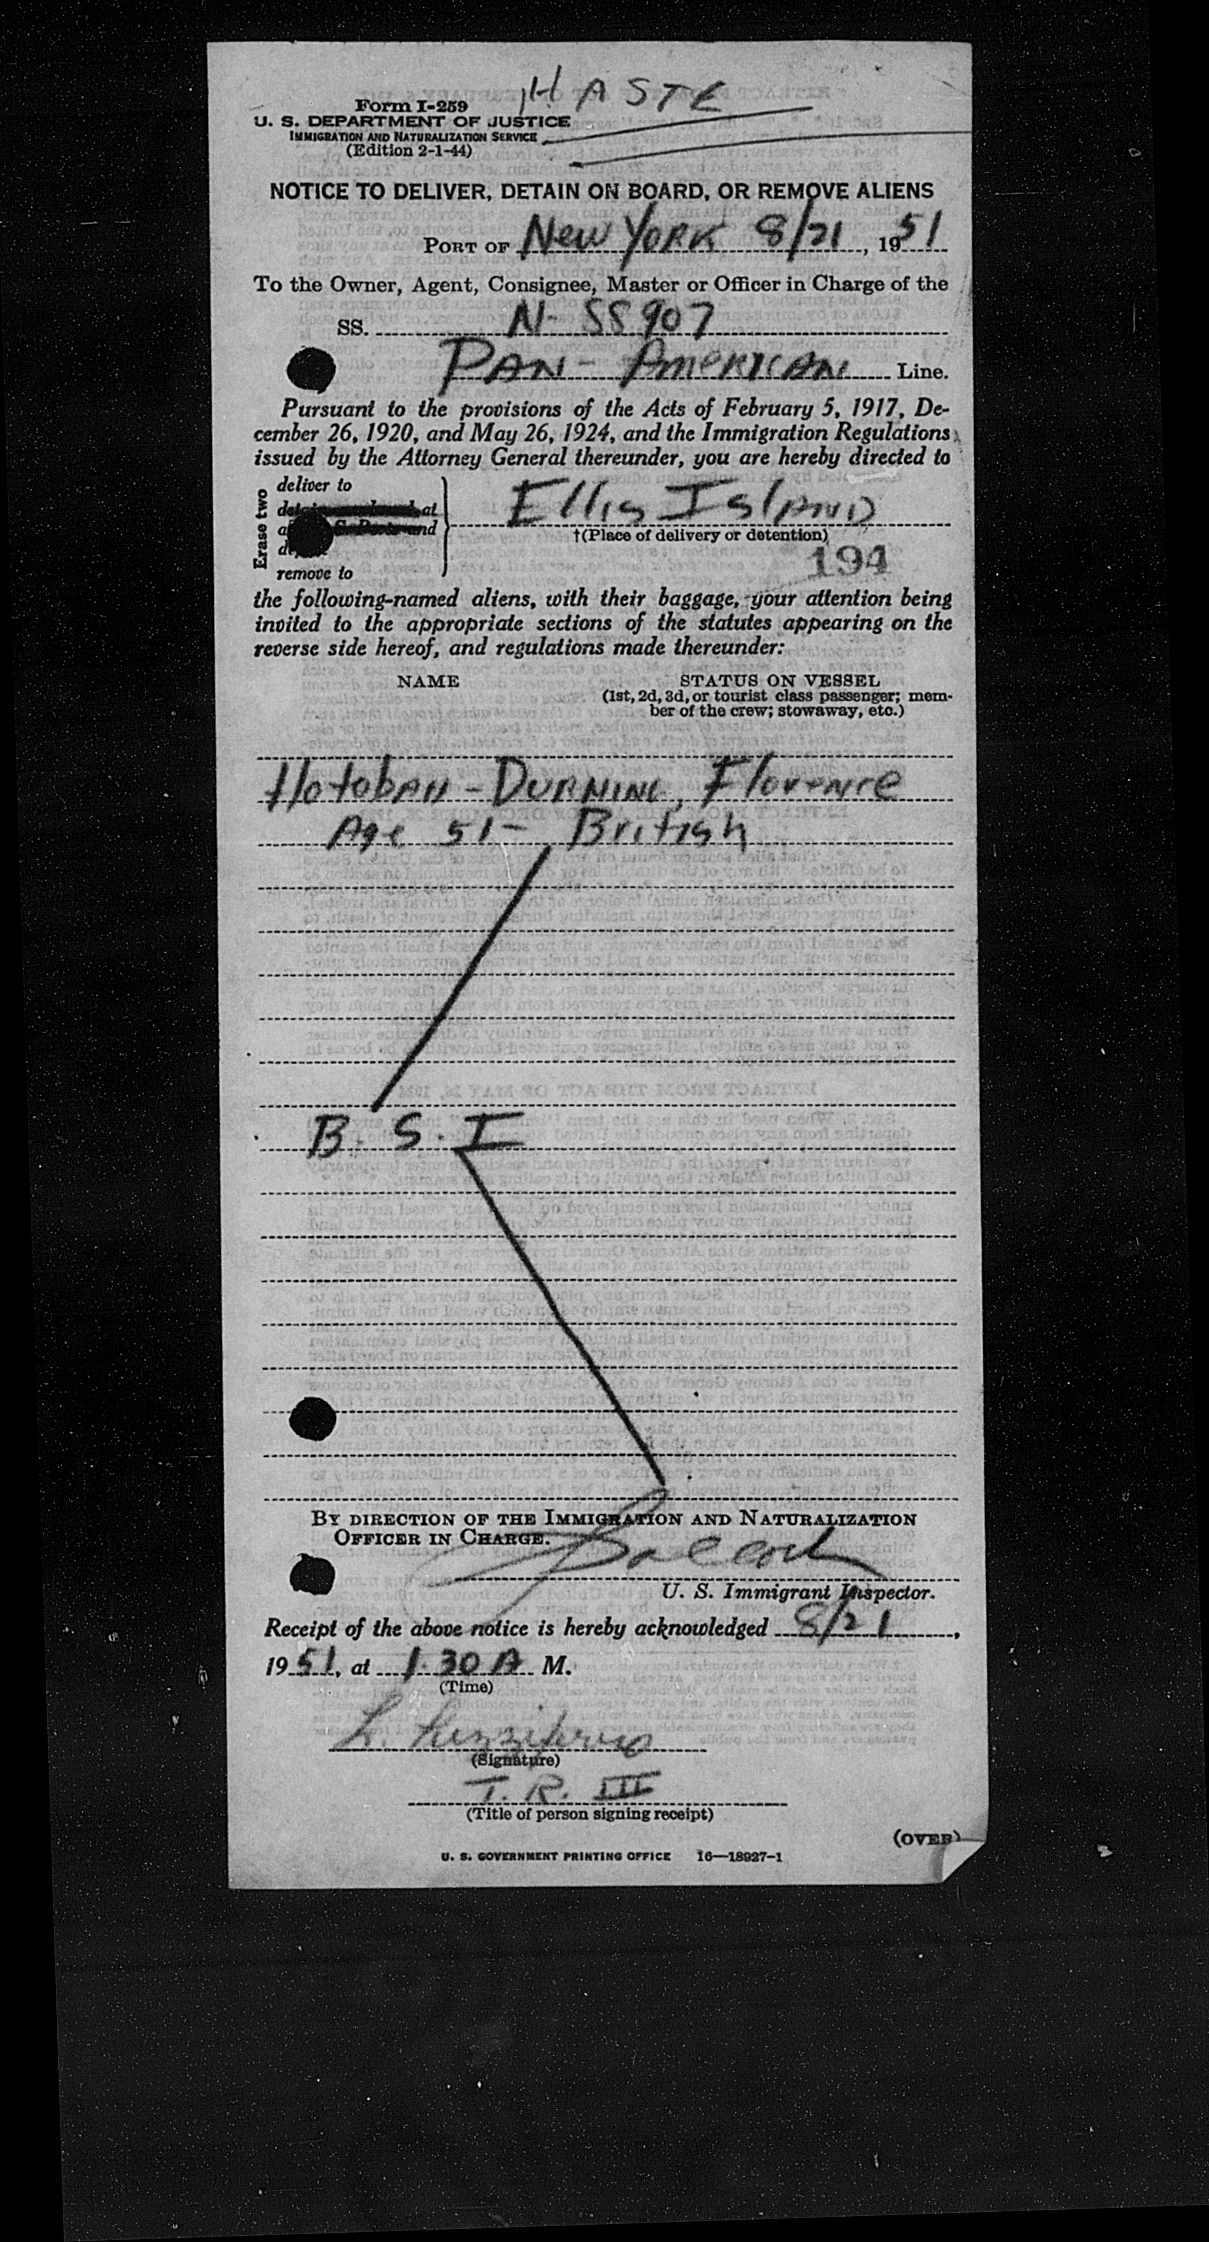 HASTE
Form I-259
U. S. DEPARTMENT OF JUSTICE
IMMIGRATION AND NATURALIZATION SERVICE
(Edition 2-1-44)
NOTICE TO DELIVER, DETAIN ON BOARD, OR REMOVE ALIENS
PORT OF New YORK 8/21, 1951
To the Owner, Agent, Consignee, Master or Officer in Charge of the
SS. N-SS907
PAN-AMERICAN Line.
Pursuant to the provisions of the Acts of February 5, 1917, De-
cember 26, 1920, and May 26, 1924, and the Immigration Regulations
issued by the Attorney General thereunder, you are hereby directed to
Erase two
deliver to
at
and
remove to
Ellis ISLAND
†(Place of delivery or detention)
194
the following-named aliens, with their baggage, your attention being
invited to the appropriate sections of the statutes appearing on the
reverse side hereof, and regulations made thereunder:
NAME STATUS ON VESSEL
(1st, 2d, 3d, or tourist class passenger; mem-
ber of the crew; stowaway, etc.)
Florence
Age 51- British
B. S. I
BY DIRECTION OF THE IMMIGRATION AND NATURALIZATION
OFFICER IN CHARGE.
U. S. Immigrant Inspector.
Receipt of the above notice is hereby acknowledged 8/21,
1951, at 1.30 A M.
(Time)
L.
(Signature)
T. R. III
(Title of person signing receipt)
(OVER)
U. S. GOVERNMENT PRINTING OFFICE 16—18927-1